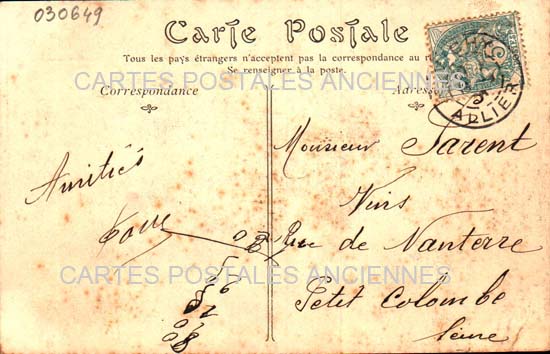 030649
Carte Postale
Tous les pays étrangers n'acceptent pas la correspondance au
Se renseigner à la poste.
CARTES POSTALES ANCIENNES
Correspondance
Adresse
ALLIER
Monsieur Parent
Amitiés
Vins
Rue de Nanterre
CARTES POSTALES ANCIENNES
Petit Colombe
Seine